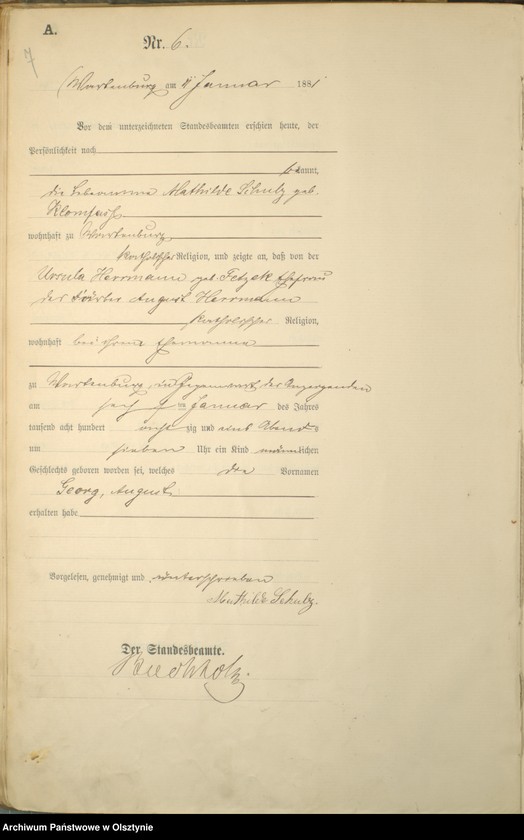 A.
7
Nr. 6.
Wartenburg am 11 Januar 1881
Vor dem unterzeichneten Standesbeamten erschien heute, der
Persönlichkeit nach
kannt,
die Hebamme Mathilde Schulz geb.
wohnhaft zu Wartenburg
katholischer Religion, und zeigte an, daß von der
Ursula Herrmann geb. Tetzek Ehefrau
des August Herrmann
katholischer Religion,
wohnhaft bei ihrem Ehemanne
zu Wartenburg, in Gegenwart der Anzeigenden
am Januar des Jahres
tausend acht hundert acht zig und eins Abends
um sieben Uhr ein Kind männlichen
Geschlechts geboren worden sei, welches die Vornamen
Georg, August
erhalten habe
Vorgelesen, genehmigt und unterschrieben
Mathilde Schulz.
Der Standesbeamte.
Archiwum Państwowe w Olsztynie